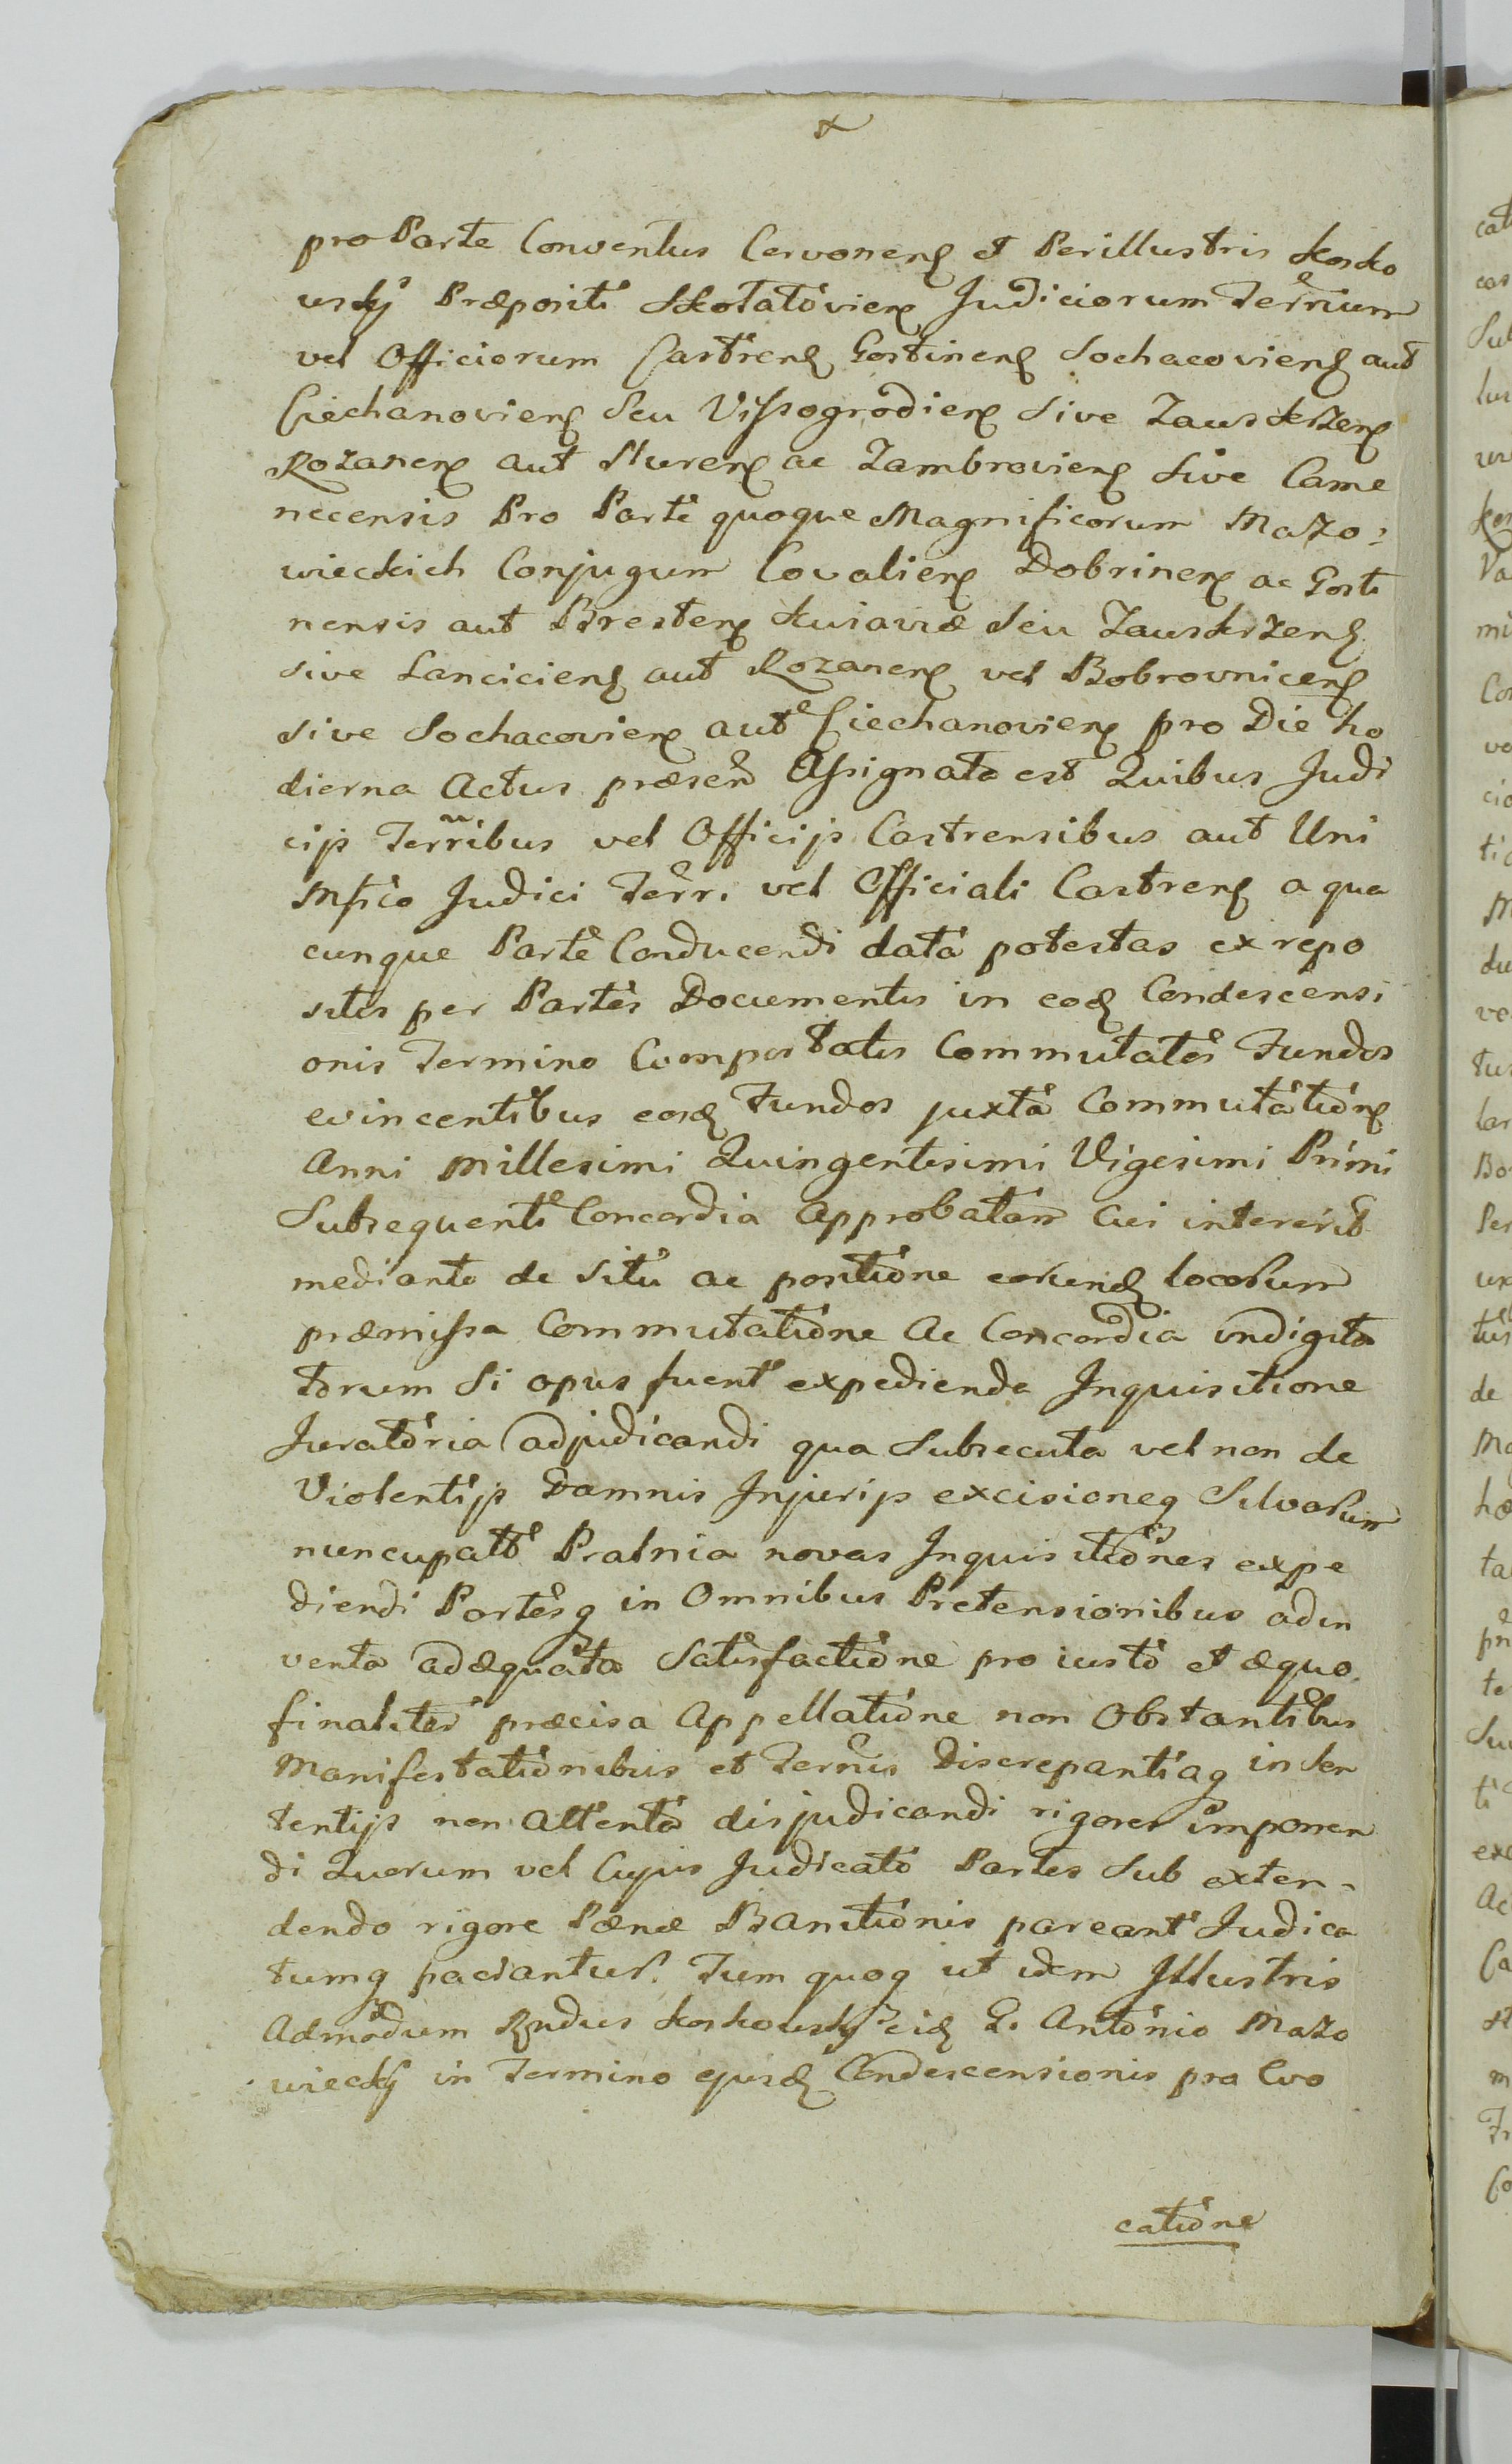 pro Parte Conventus Cervonen et Perillustris Kosko
wskÿ Præpositi Skołatovien Judiciorum Terrium
vel Officiorum Castren Gostinen Sochacovien aut
Ciechanovien Seu Vissogrodien Sive Zauskrzen
Rozanen aut Nuren ac Zambrovien Sive Came
necensis Pro Parte quoque Magnificorum Mazo:
wieckich Conjugum Covalien Dobrinen ac Gosti
nensis aut Bresten Kuiaviæ Seu Zauskrzen
sive Lancicien aut Rozanen vel Bobrovnicen
sive Sochacovien aut Ciechanovien pro Die ho
dierna Actus præsen Assignata est Quibus Judi
cijs Terribus vel Officijs Castrensibus aut Uni
Mfico Judici Terr. vel Officiali Castren a qua
cunque Parte Conducendi data potestas ex repo
sitis per Partes Documentis in eod Condescensi
onis Termino Comportatis Commutates Fundos
evincentibus eosd Fundos juxta Commutation
Anni Millesimi Quingentesimi Vigesimi Primi
Subsequenti Concordia Approbatam Cui intererit
mediante de situ ac positione eorund locorum
præmissa Commutatione Ac Concordia indigita
torum Si opus fuerit expedienda Inquisitione
Juratoria adjudicandi qua Subsecuta vel non de
Violentijs Damnis Injurijs excisioneq Silvarum
nuncupatt Pralnia novas Inquisitiones expe
diendi Partesq in Omnibus Pretensionibus adin
venta adæquata Satisfactione pro iusto et æquo
finaliter præcisa Appellatione non Obstantibus
Manifestationibus et Terris Discrepantiaq in Sen
tentijs non Attenta disjudicandi rigores imponen
di Quorum vel Cujus Judicato Partes Sub exten-
dendo rigore Pænæ Banitionis pareant Judica
tumq paciantur. Tum quoq ut idem Illustris
Admodum Rndus Koskowskÿ eid G. Antonio Mazo
wieckÿ in Termino ejusd Condescensionis pro Evo
catione